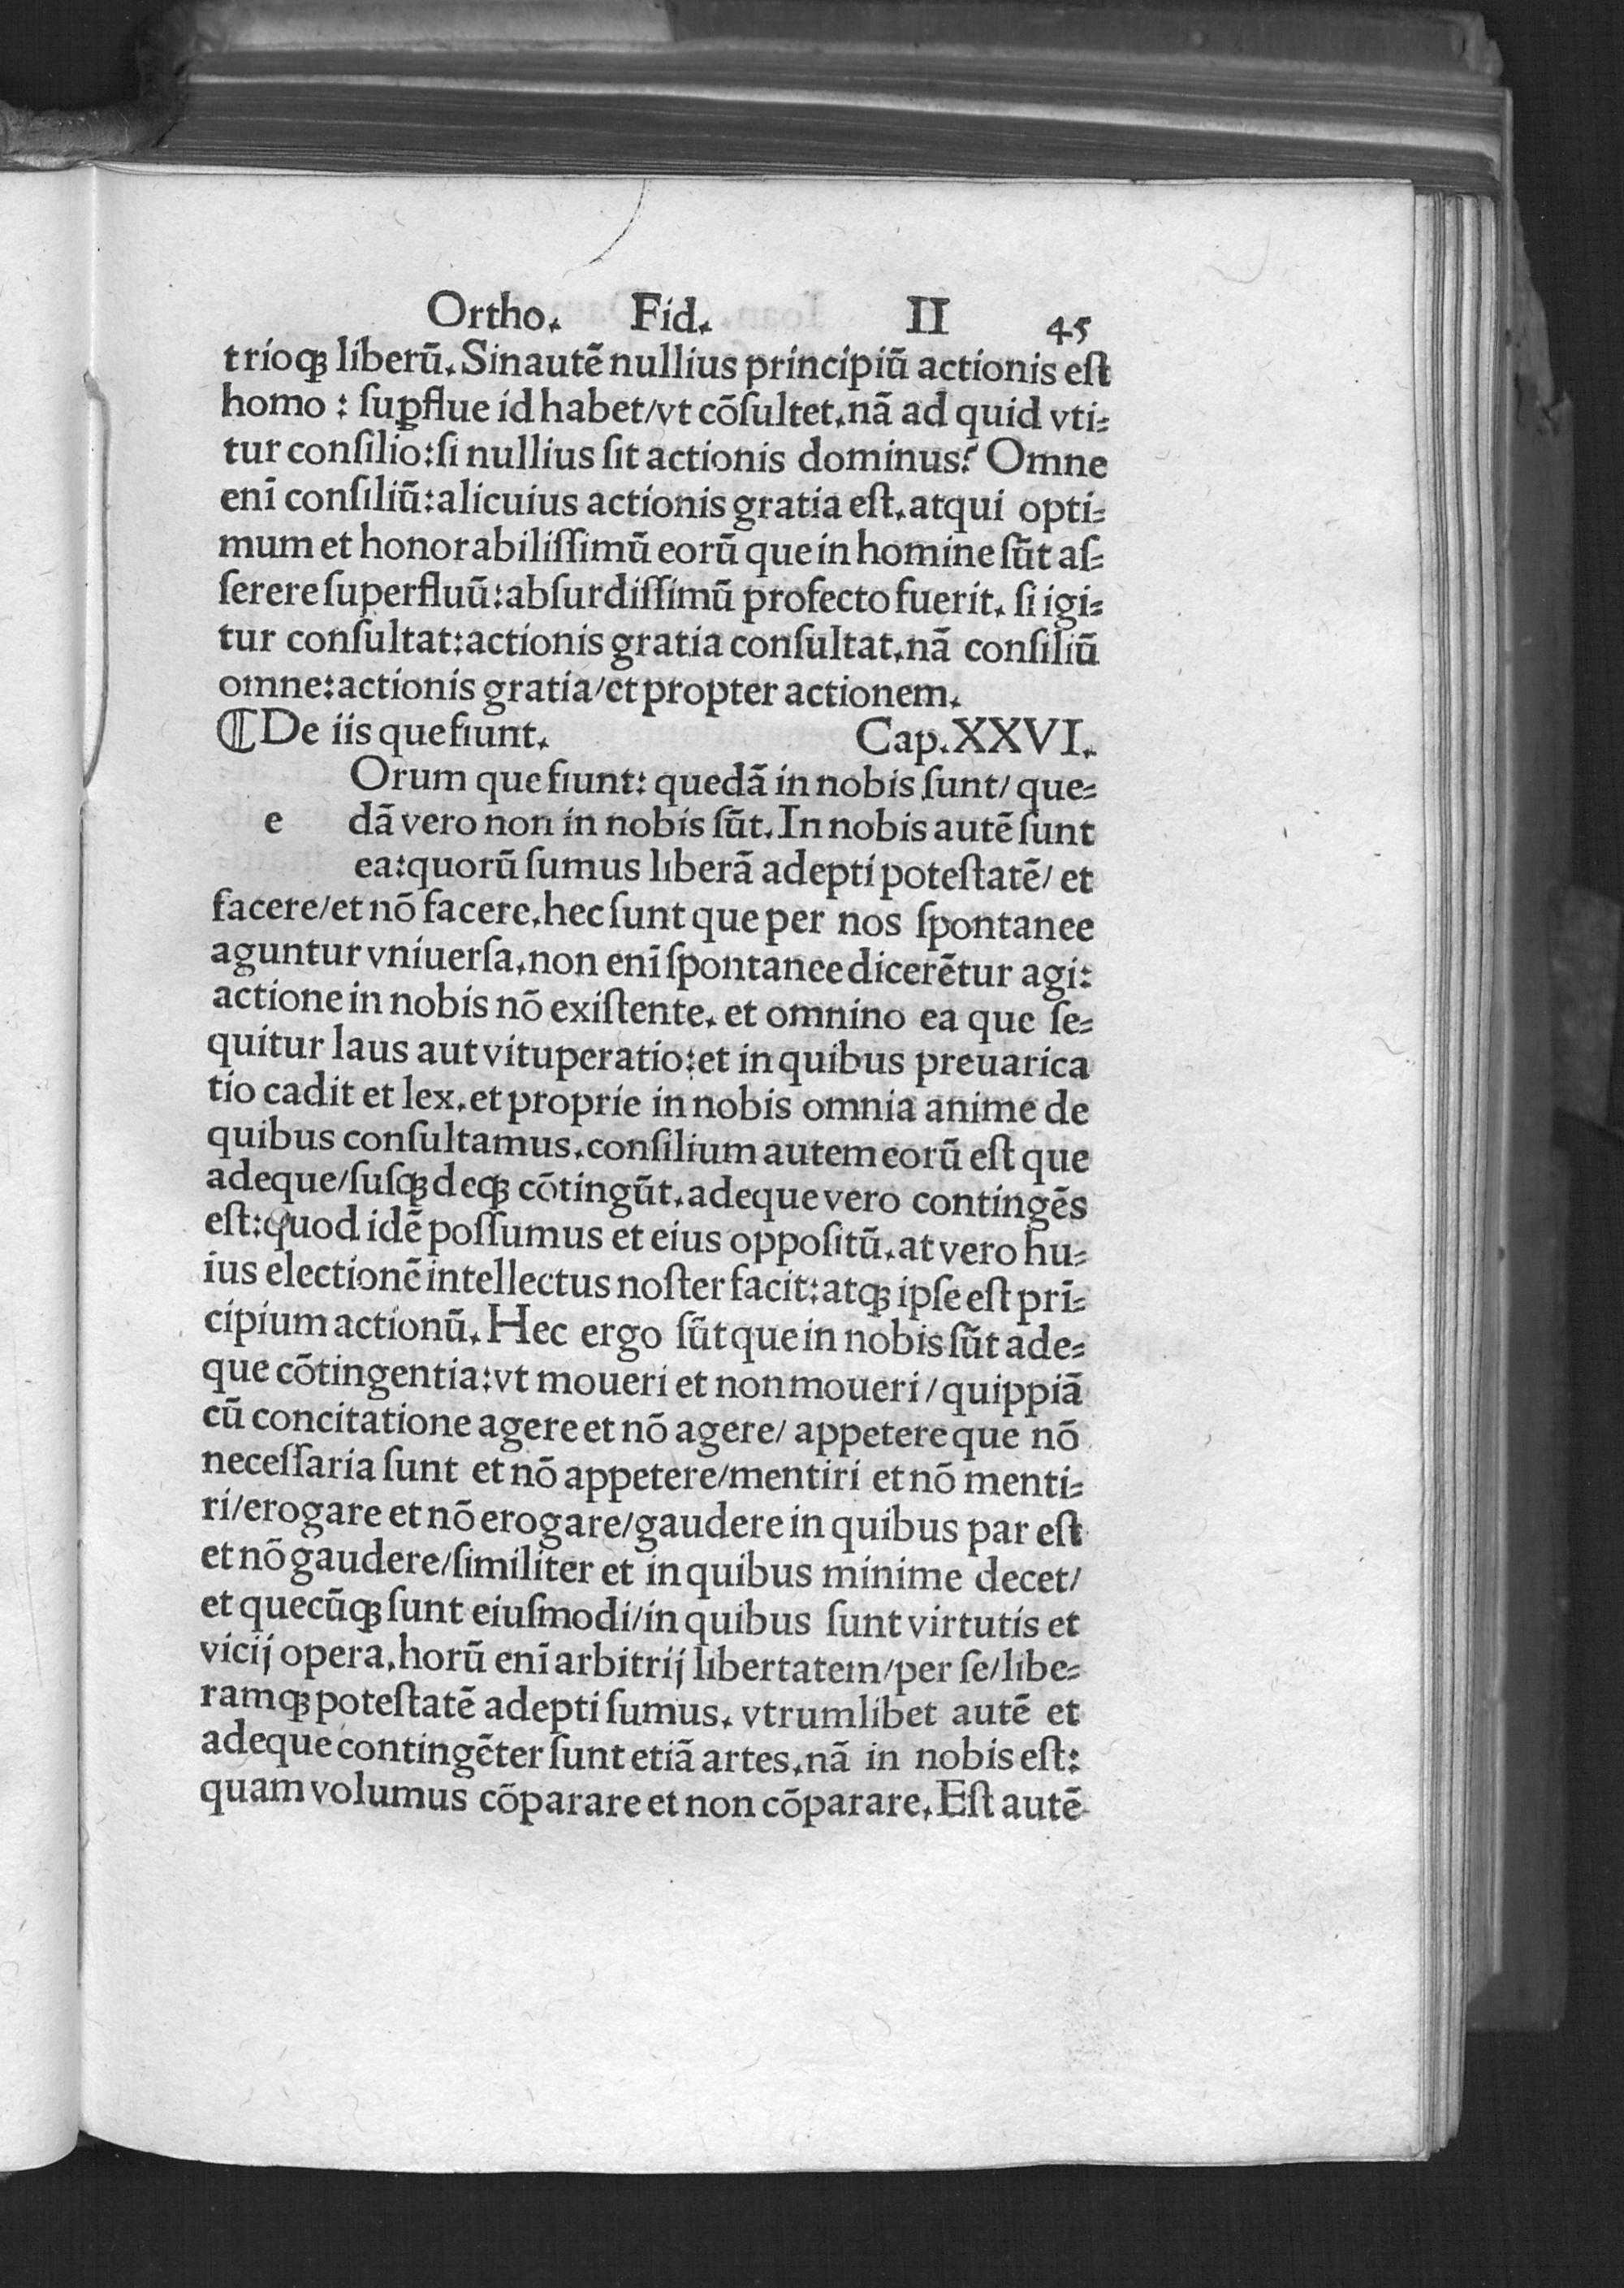 Ortho. Fid. II 45
trioqꝫ liberū. Sinautē nullius principiū actionis eſt
homo: ſuꝑflue id habet/vt cōſultet. nā ad quid vti⸗
tur conſilio: ſi nullius ſit actionis dominus? Omne
enī conſiliū: alicuius actionis gratia eſt. atqui opti⸗
mum et honorabiliſſimū eorū que in homine ſūt aſ⸗
ſerere ſuperfluū: abſurdiſſimū profecto fuerit. ſi igi⸗
tur conſultat: actionis gratia conſultat. nā conſiliū
omne: actionis gratia/et propter actionem.
¶De iis que fiunt. Cap. XXVI.
Orum que fiunt: quedā in nobis ſunt/ que⸗
e dā vero non in nobis ſūt. In nobis autē ſunt
ea: quorū ſumus liberā adepti poteſtatē/ et
facere/et nō facere. hec ſunt que per nos ſpontanee
aguntur vniuerſa. non enī ſpontanee dicerētur agi:
actione in nobis nō exiſtente. et omnino ea que ſe⸗
quitur laus aut vituperatio: et in quibus preuarica
tio cadit et lex. et proprie in nobis omnia anime de
quibus conſultamus. conſilium autem eorū eſt que
adeque/ſuſqꝫ deqꝫ cōtingūt. adeque vero contingēs
eſt: quod idē poſſumus et eius oppoſitū. at vero hu⸗
ius electionē intellectus noſter facit: atqꝫ ipſe eſt prī⸗
cipium actionū. Hec ergo ſūt que in nobis ſūt ade⸗
que cōtingentia: vt moueri et non moueri/ quippiā
cū concitatione agere et nō agere/ appetere que nō
neceſſaria ſunt et nō appetere/mentiri et nō menti⸗
ri/erogare et nō erogare/gaudere in quibus par eſt
et nō gaudere/ſimiliter et in quibus minime decet/
et quecūqꝫ ſunt eiuſmodi/in quibus ſunt virtutis et
vicij opera. horū enī arbitrij libertatem/per ſe/libe⸗
ramqꝫ poteſtatē adepti ſumus. vtrumlibet autē et
adeque contingēter ſunt etiā artes. nā in nobis eſt:
quam volumus cōparare et non cōparare. Eſt autē